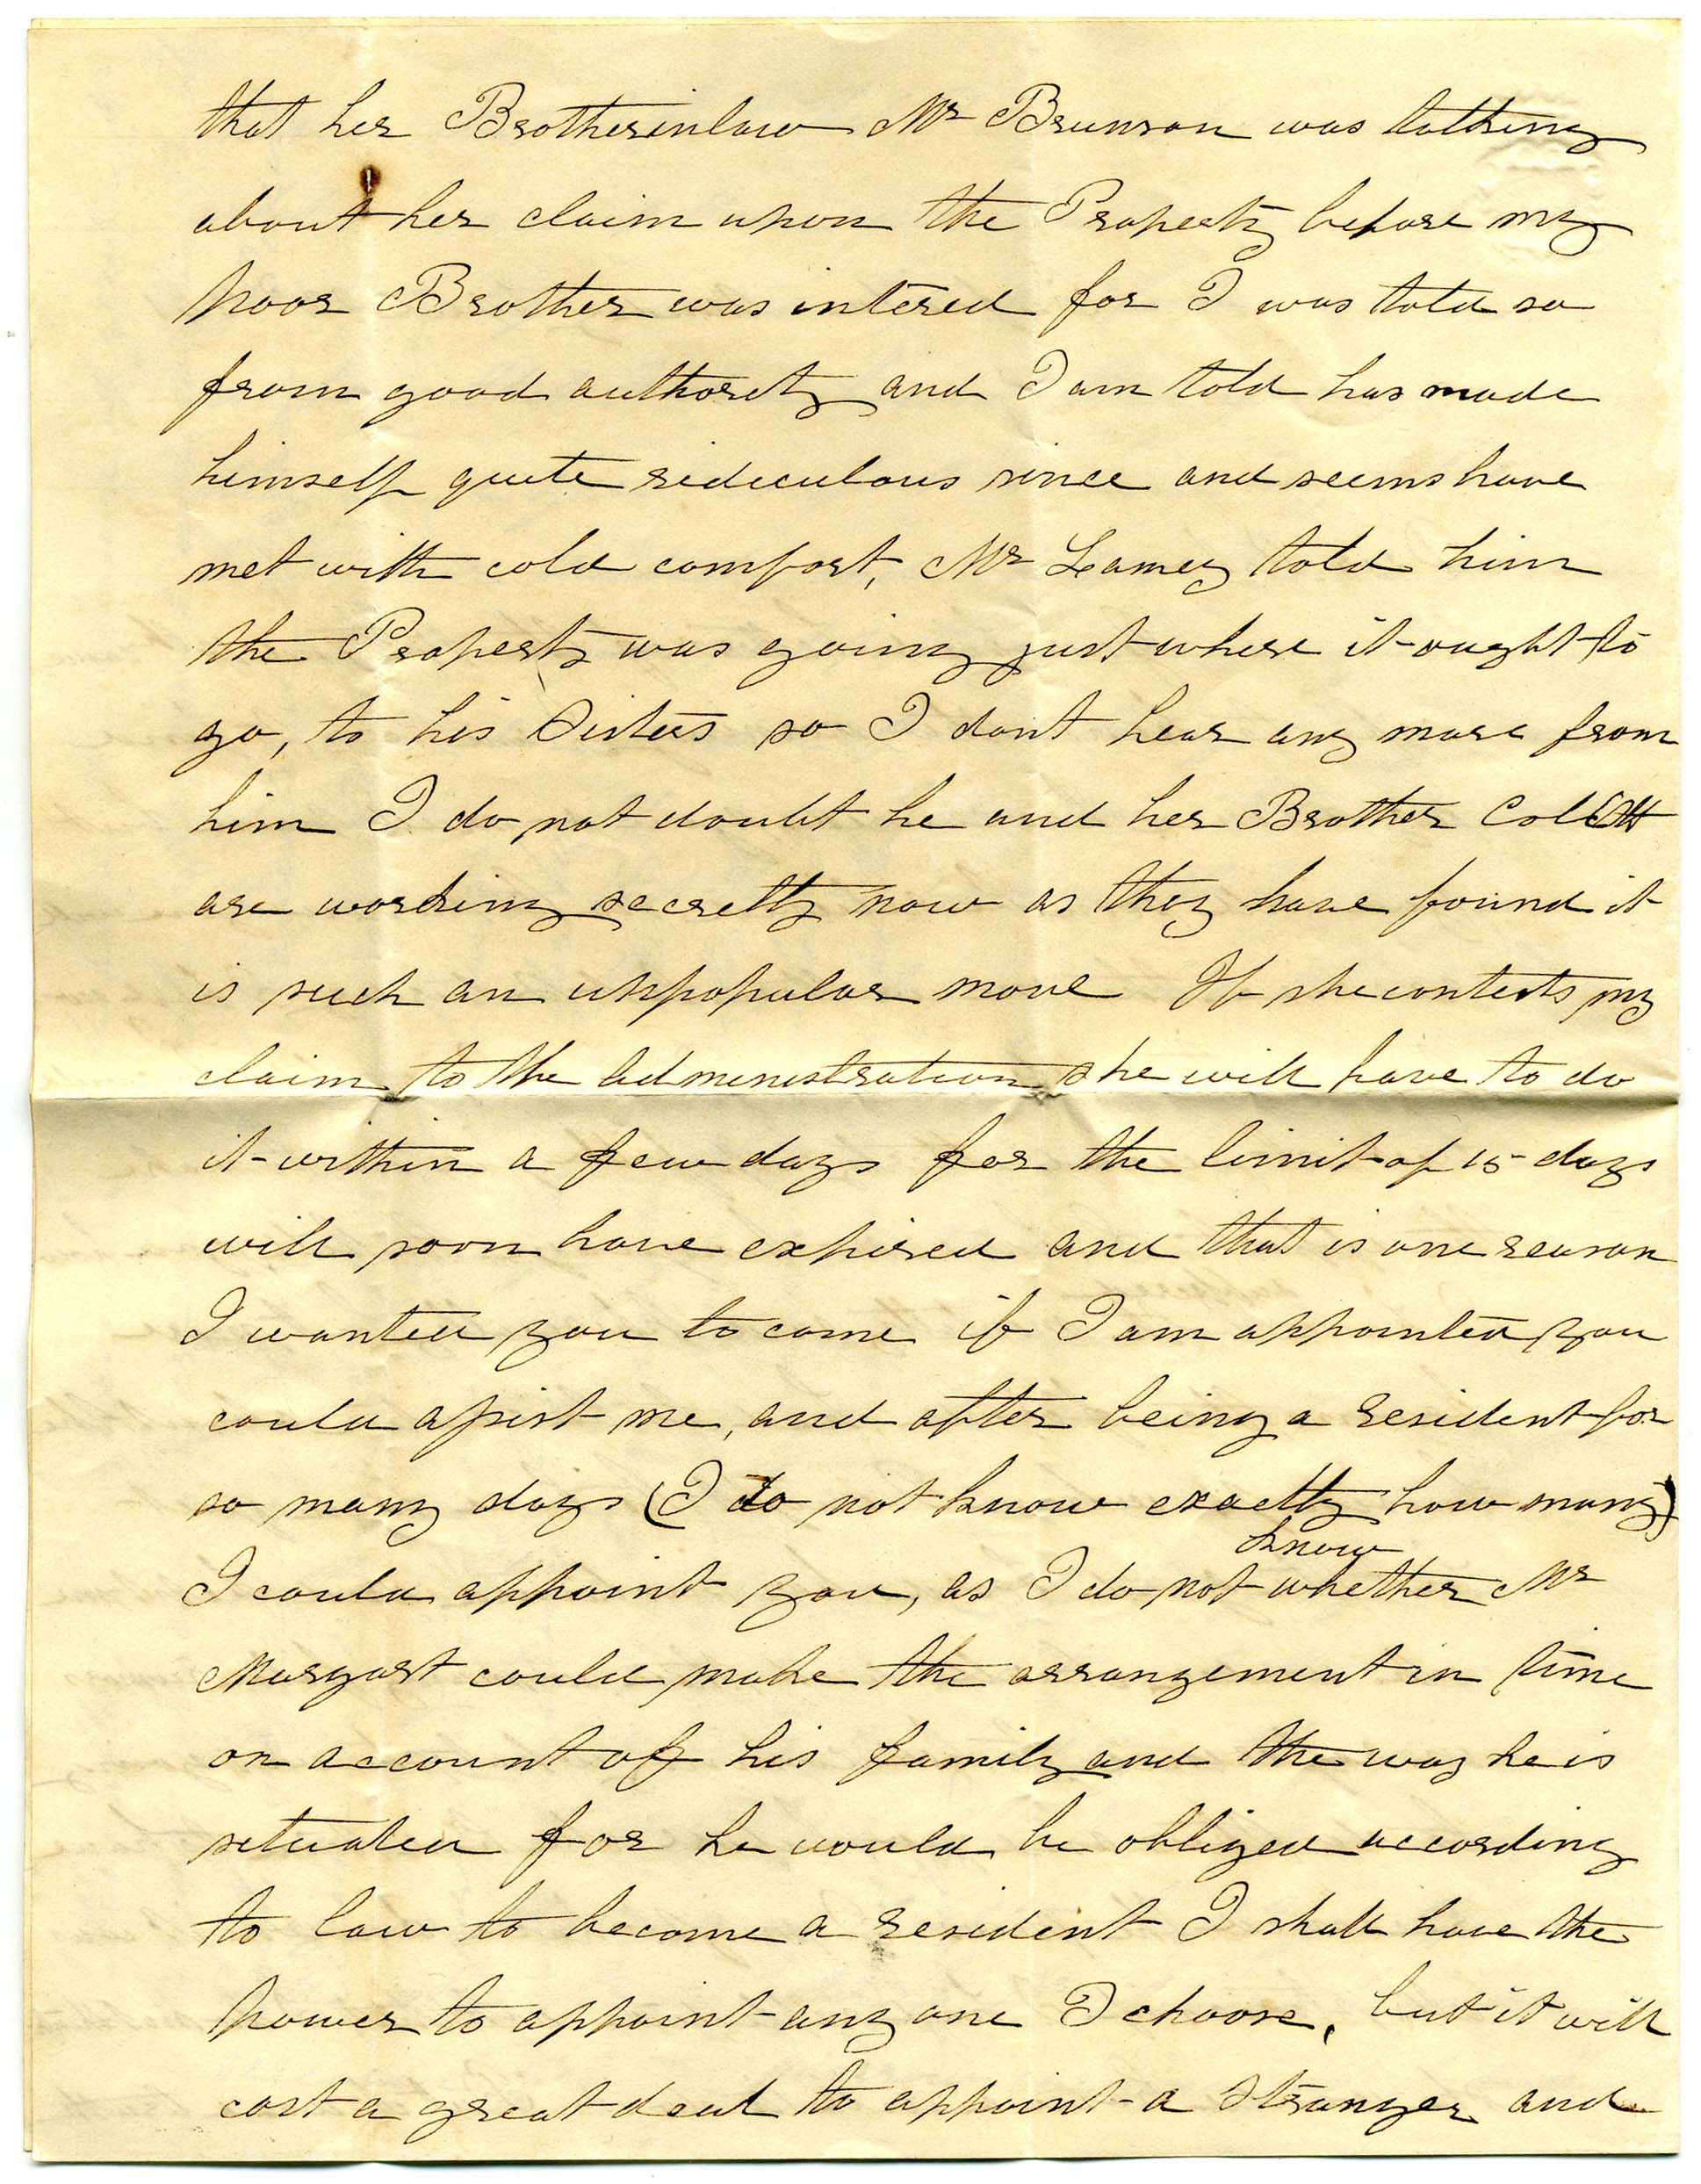 that her Brotherinlaw Mr Brunson was talking
about her claim upon the Property before my
poor Brother was intered for I was told so
from good authorety and I am told has made
himself quite rediculous since and seems have
met with cold comfort, Mr Leamey told him
the Property was going just where it ought to
go, to his Sisters so I dont hear any more from
him I do not doubt he and her Brother Col
are working secretly now as they have found it
is such an unpopular move If she contests my
claim to the administration she will have to do
it within a few days for the limit of 15 days
will soon have expired and that is one reason
I wanted you to come if I am appointed you
could assist me, and after being a resident for
so many days (I do not know exactly how many)
know
I could appoint you, as I do not whether Mr
Margart could make the arrangement in time
on account of his family and the way he is
situated for he would be obliged according
to law to become a resident I shall have the
power to appoint any one I choose, but it will
cost a great deal to appoint a stranger and